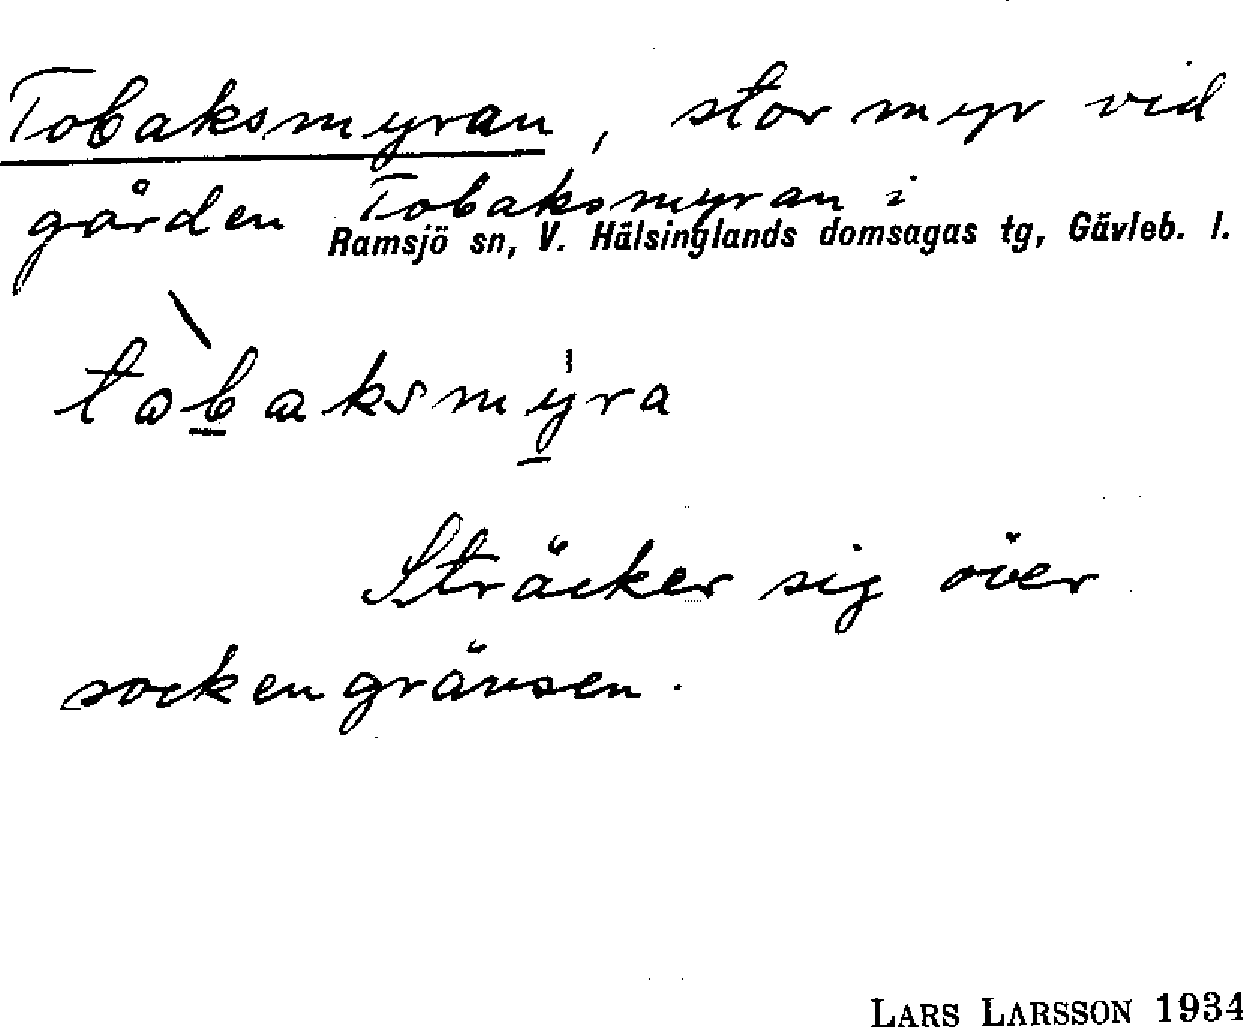 Tobaksmyran, stor myr vid
gården Tobaksmyran i
Ramsjö sn, V. Hälsinglands domsagas tg, Gävleb. l.
tobaksmyra
Sträcker sig över
sockengränsen.
LARS LARSSON 1934